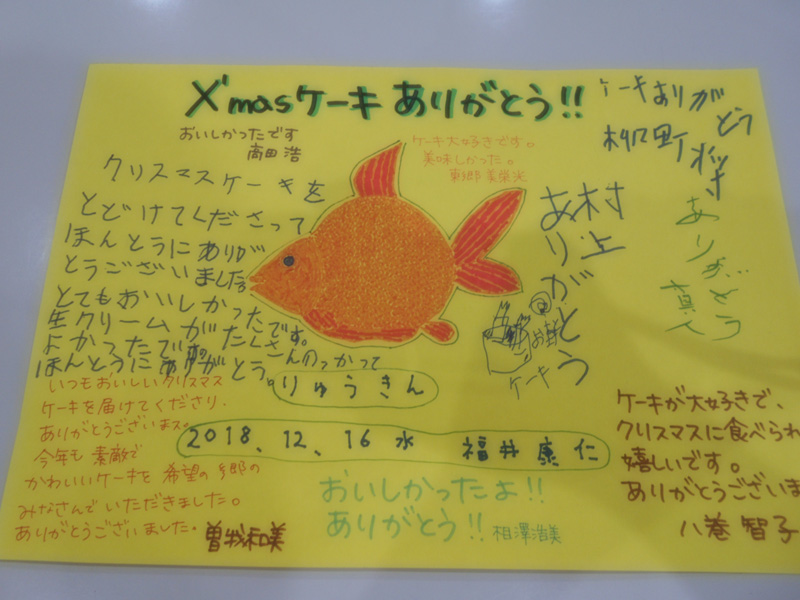 X'masケーキ ありがとう!!
おいしかったです
高田 浩
ケーキ大好きです。
美味しかった。
東郷 美榮光
ケーキありがとう
クリスマスケーキを
とどけてくださって
ほんとうにありが
とうございました。
とてもおいしかったです。
生クリームがたくさんのっかって
よかったです。
ほんとうにありがとう。
村上
ありがとう
ケーキ
ありがとう
真人
りゅうきん
2018、12、16 水 福井 康仁
いつもおいしいクリスマス
ケーキを届けてくださり、
ありがとうございまス。
今年も 素敵で
かわいいケーキを 希望の郷の
みなさんでいただきました。
ありがとうございました。
曽我和美
おいしかったよ!!
ありがとう!! 相澤浩美
ケーキが大好きで、
クリスマスに食べられ
嬉しいです。
ありがとうございま
八巻 智子